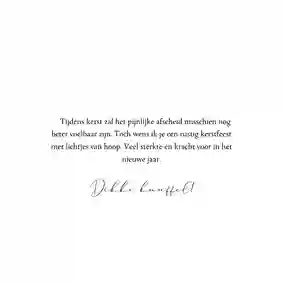 Tijdens kerst zal het pijnlijke afscheid misschien nog
beter voelbaar zijn. Toch wens ik je een rustig kerstfeest
met lichtjes van hoop. Veel sterkte en kracht voor in het
nieuwe jaar.
Dikke knuffel!